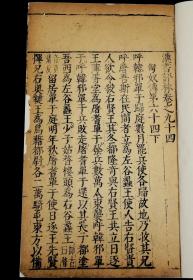 漢書評林卷之九十四
匈奴傳第六十四下
呼韓邪單于歸庭數月罷兵使各歸故地乃收其兄
呼屠吾斯在民間者立為左谷蠡王使人告右賢貴
人欲令殺右賢王其冬都隆奇與右賢王共立日逐
王薄胥堂為屠耆單于發兵數萬人東襲呼韓邪單
于呼韓邪單于兵敗走屠耆單于還以其長子都塗
吾西為左谷蠡王少子姑瞀樓頭為右谷蠡王
留居單于庭明年秋屠耆單于使日逐王先賢
撣兄右奧鞬王為烏藉都尉各二萬騎屯東方以備